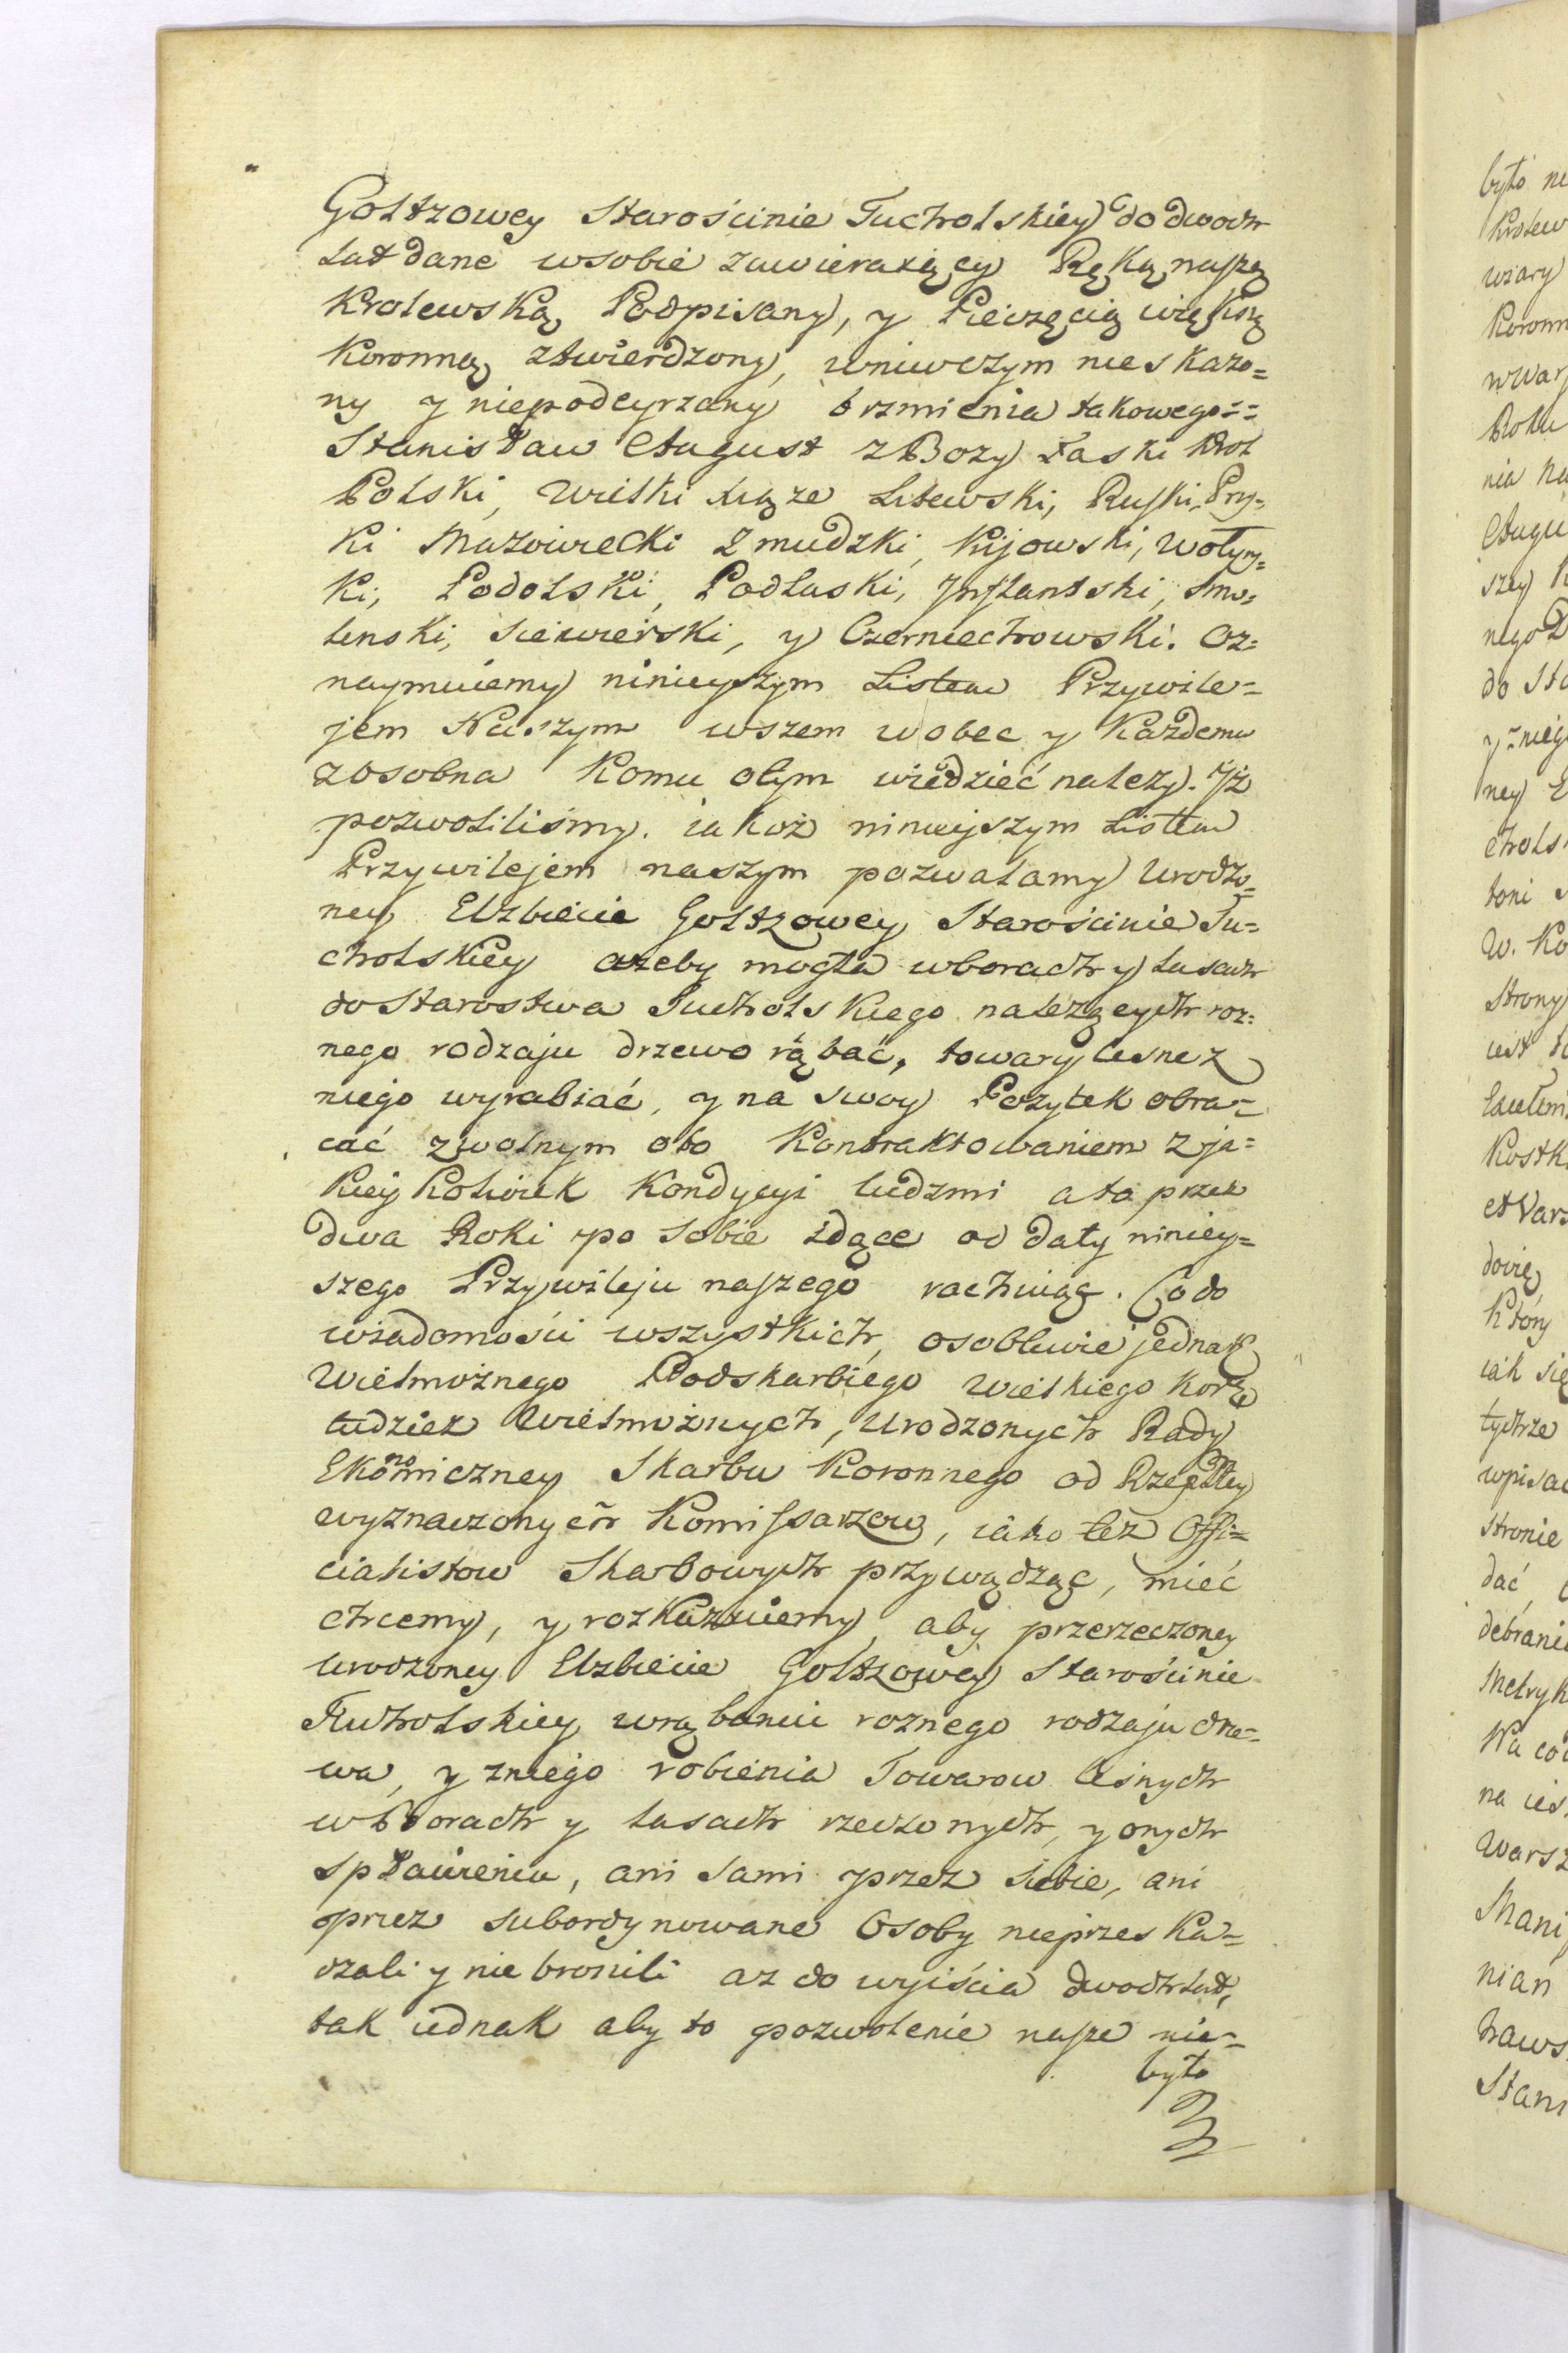 Goltzowey Starościnie Tucholskiey do dwoch
Lat dane wsobie zawieraiący Ręką naszą
Krolewską Podpisany, y Pieczęcią większą
Koronną ztwierdzony, wniwczym nieskazo=
ny y niepodeyrzany brzmienia takowego==
Stanisław August z Bozy Łaski Krol
Polski, Wielki Xiąze Litewski, Ruski, Pru=
ki Mazowiecki Zmudzki, Kijowski, Wołyn=
ki, Podolski, Podlaski, Inflantski, Smo=
lenski, Siewierski, y Czerniechowski. Oz=
naymuiemy ninieyszym Listem Przywile=
jem Naszym wszem wobec y Każdemu
zosobna Komu otym wiedzieć nalezy. Iż
pozwoliliśmy. iakoż ninieyszym Listem
Przywilejem naszym pozwalamy Urodzo=
ney Elzbiecie Goltzowey Starościnie Tu=
cholskiey azeby mogła wborach y lasach
do Starostwa Tucholskiego nalezących roz=
nego rodzaju drzewo rąbać, towary lesne z
niego wyrabiać, y na swoy Pozytek obra=
cać zwolnym oto Kontraktowaniem z ja=
kiey kolwiek Kondycyi ludzmi a to przez
dwa Roki po sobie idące od daty niniey=
szego Przywileju naszego rachuiąc. Co do
wiadomości wszystkich, osobliwie jednak
Wielmożnego Podskarbiego Wielkiego Kor:
tudziez Wielmożnych, Urodzonych Rady
Ekonomiczney Skarbu Koronnego od Rzeczpltey
wyznaczonych Komissarzow, iako też Offi=
cialistow Skarbowych przywądząc, mieć
chcemy, y rozkazuiemy, aby przerzeczoney
urodzoney Elzbiecie Goltzowey Starościnie
Tucholskiey wrąbaniu roznego rodzaju drze=
wa, y zniego robienia Towarow leśnych
w Borach y lasach rzeczonych, y onych
spławieniu, ani sami przez siebie, ani
przez subordynowane Osoby nieprzeszka=
dzali y nie bronili az do wyiścia dwoch Lat,
tak iednak aby to pozwolenie nasze nie=
było
było
Krolew
wiary
Koronn
Roku
nia
Augu
szey
nego
do Sta
y zniego
ney
chols
toni
W. Ko
strony
iest
Kostk
et Vars
Ktory
iak się
tychze
wpisa
stronie
dać,
debrani
Metryk
Na co
na ies
Warsz
Mani
nian
Stani